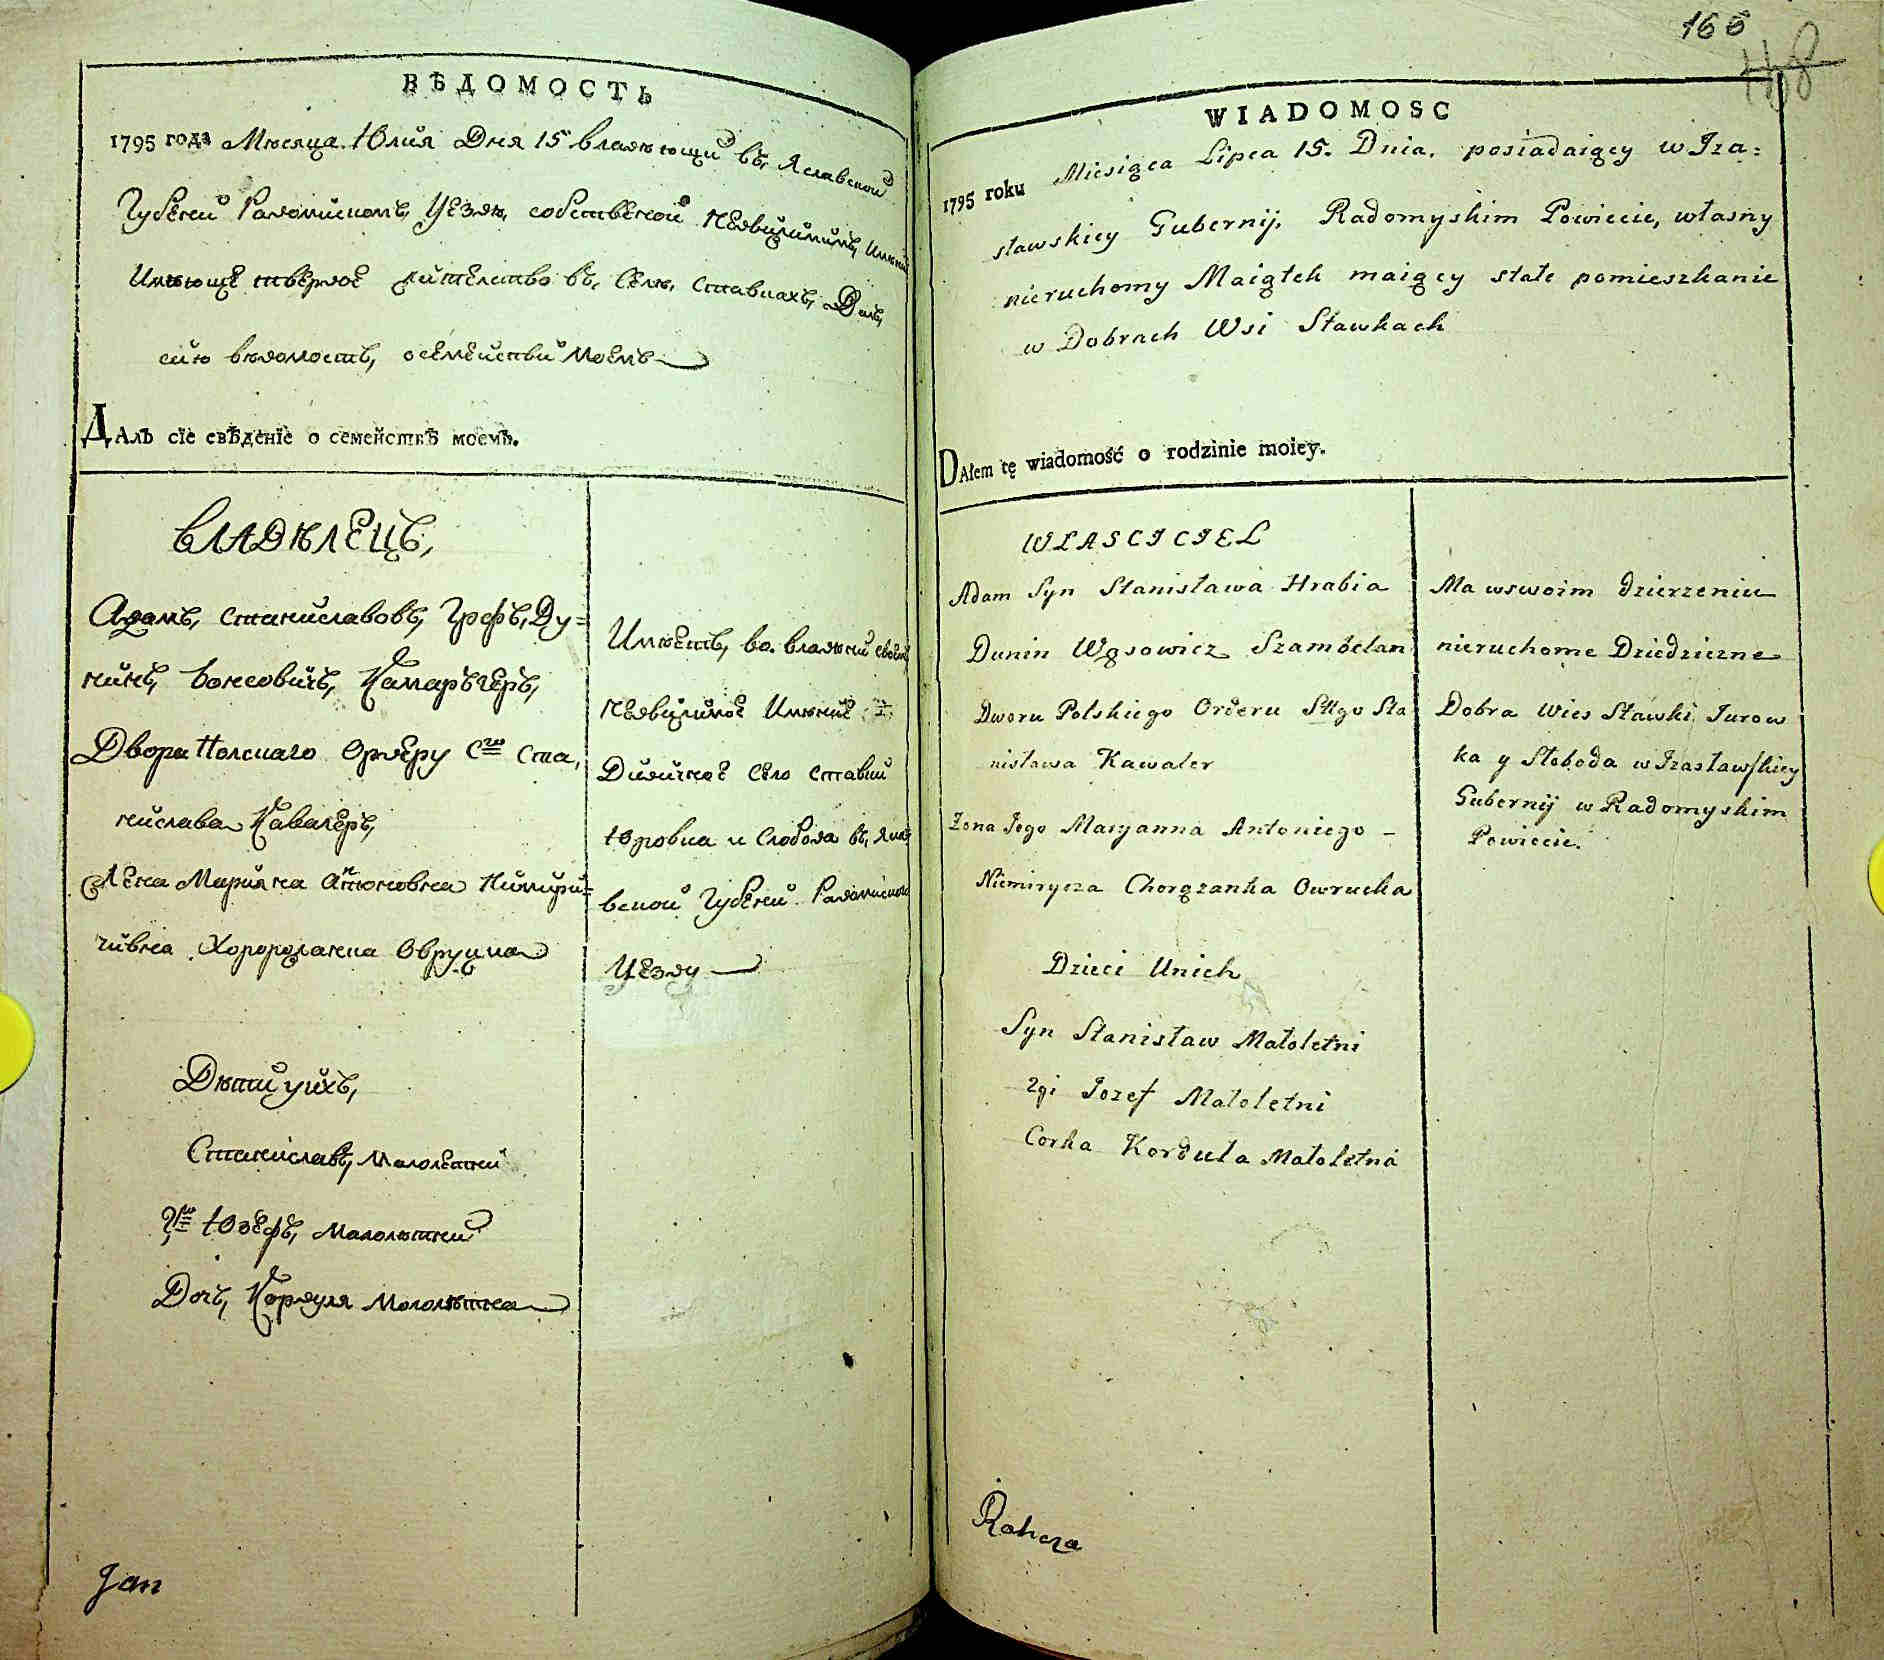 ВѢДОМОСТЬ
1795 года Мѣсяца Юлия Дня 15 владѣющи въ Яславской
Губении Радомискомъ Уездѣ, собственой недвижимимъ Имени
Имѣюще твердое жителство въ Селѣ Ставкахъ, Далъ
сию вѣдомость, о семействи Моемъ
ДАлъ сїе свѣденїе о семействѣ моемъ.
ВЛАДѢЛЕЦЪ,
Адамъ, Станиславовъ, Грфъ, Ду=
нинъ, Вонсовичъ, Камаръгеръ,
Двора Полскаго Ордеру Сго Ста,
нислава Кавалеръ,
Жена Мариянна Антоновна Нимири=
чивна Хоророжанка Овруцка
Дѣти у ихъ,
Станиславъ, Малолетни
2го Юзефъ, Малолѣтни
Дочъ, Кордуля Малолѣтна
Имѣетъ, во владѣни своем
недвижимое Имѣние
Дидичное Село Ставки
Юровка и Слобода въ
вской Губени Радомиском
Уезду
Jan
166
118
WIADOMOSC
1795 roku Miesiąca Lipca 15. Dnia, posiadaiący w Iza=
sławskiey Gubernij, Radomyskim Powiecie, własny
nieruchomy Maiątek maiący stałe pomieszkanie
w Dobrach Wsi Stawkach
DAłem tę wiadomość o rodzinie moiey.
WŁASCICIEL
Adam Syn Stanisława Hrabia
Dunin Wąsowicz Szambelan
Dworu Polskiego Orderu Sttgo Sta
nisława Kawaler
Zona Jego Maryanna Antoniego –
Niemirycza Chorązanka Owrucka
Dzieci Unich
Syn Stanisław Małoletni
2gi Jozef Małoletni
Corka Korduła Małoletna
Ma wswoim dzierzeniu
nieruchome Dziedziczne
Dobra Wies Stawki Jurow
ka y Słoboda w Izasławskiey
Gubernij w Radomyskim
Powiecie.
Rohoza